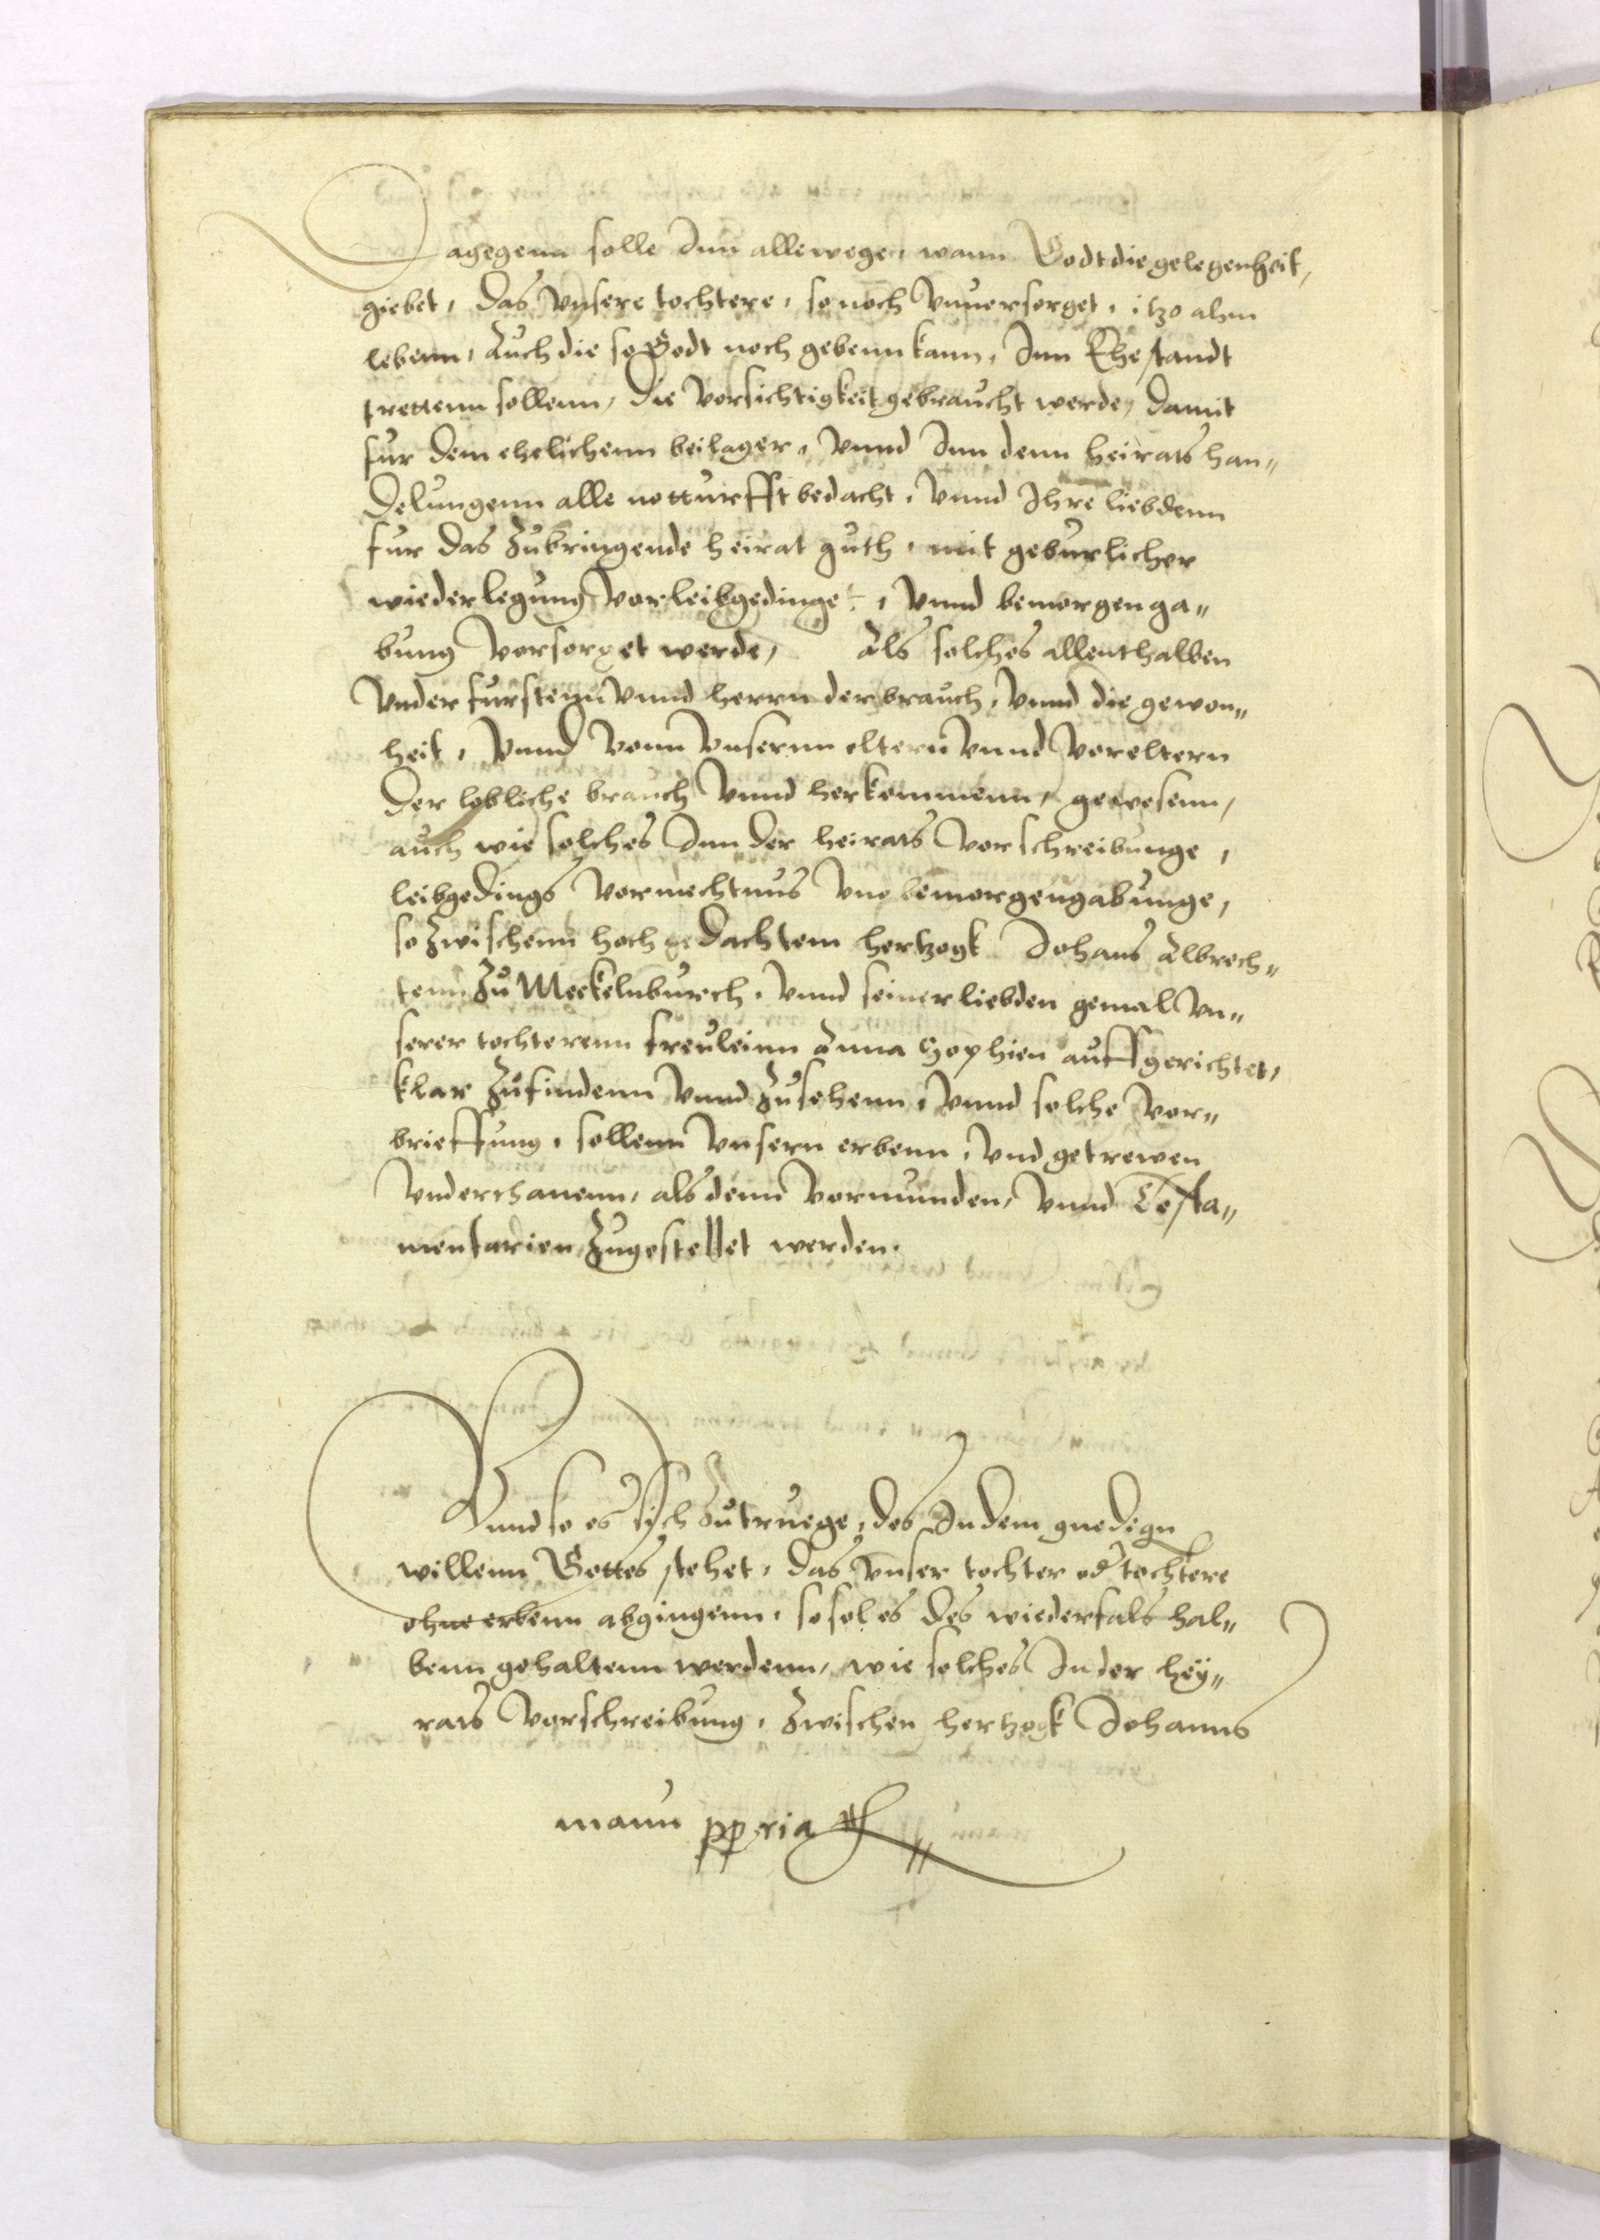 Dagegenn solle Inn allewege, wann Godt die gelegenheit,
giebet, das Vnsere tochtere, so noch Vnuersorget, itzo ahm
lebenn, Auch die so Godt noch gebenn kann, Inn Ehestandt
trettenn sollenn, die Vorsichtigkeit gebraucht werde, damit
fur dem ehelichenn beilager, Vnnd Inn denn heirats han„
delungenn alle notturfft bedacht, Vnnd Ihre liebdenn
fur das Zubringende heirat guth, mit geburlicher
wiederlegung Vorleibgedinget, Vnnd bemorgenga„
bung Vorsorget werde, Als solches allenthalben
Vnder furstenn Vnnd herrn der brauch, Vnnd die gewon„
heit, Vnnd Vonn Vnsernn eltern Vnnd Voreltern
der lobliche brauch Vnnd herkommenn, gewesenn,
auch wie solches Inn der heirats Vorschreibunge,
leibgedings Vormechtnus Vnd bemorgengabunge,
so Zwischenn hochgedachtem hertzogk Johans Albrech„
tenn Zu Meckelnburch, Vnnd seiner liebden gemal Vn„
serer tochterenn freuleinn Anna Sophien auffgerichtet,
klar Zufindenn Vnnd Zusehenn, Vnnd solche Vor„
brieffung, sollenn Vnsern erbenn, Vnd getrewen
Vnderthanenn, als denn Vormunden, Vnnd Testa„
mentarien Zugestellet werden.
Vnnd so es sich Zutruege, des In dem gnedign
willenn Gottes stehet, das Vnser tochter od tochtere
ohne erbenn abgingenn, so sol es des wiederfals hal„
benn gehaltenn werdenn, wie solches In der hey„
rats Vorschreibung, Zwischen hertzogk Johanns
manu ppria